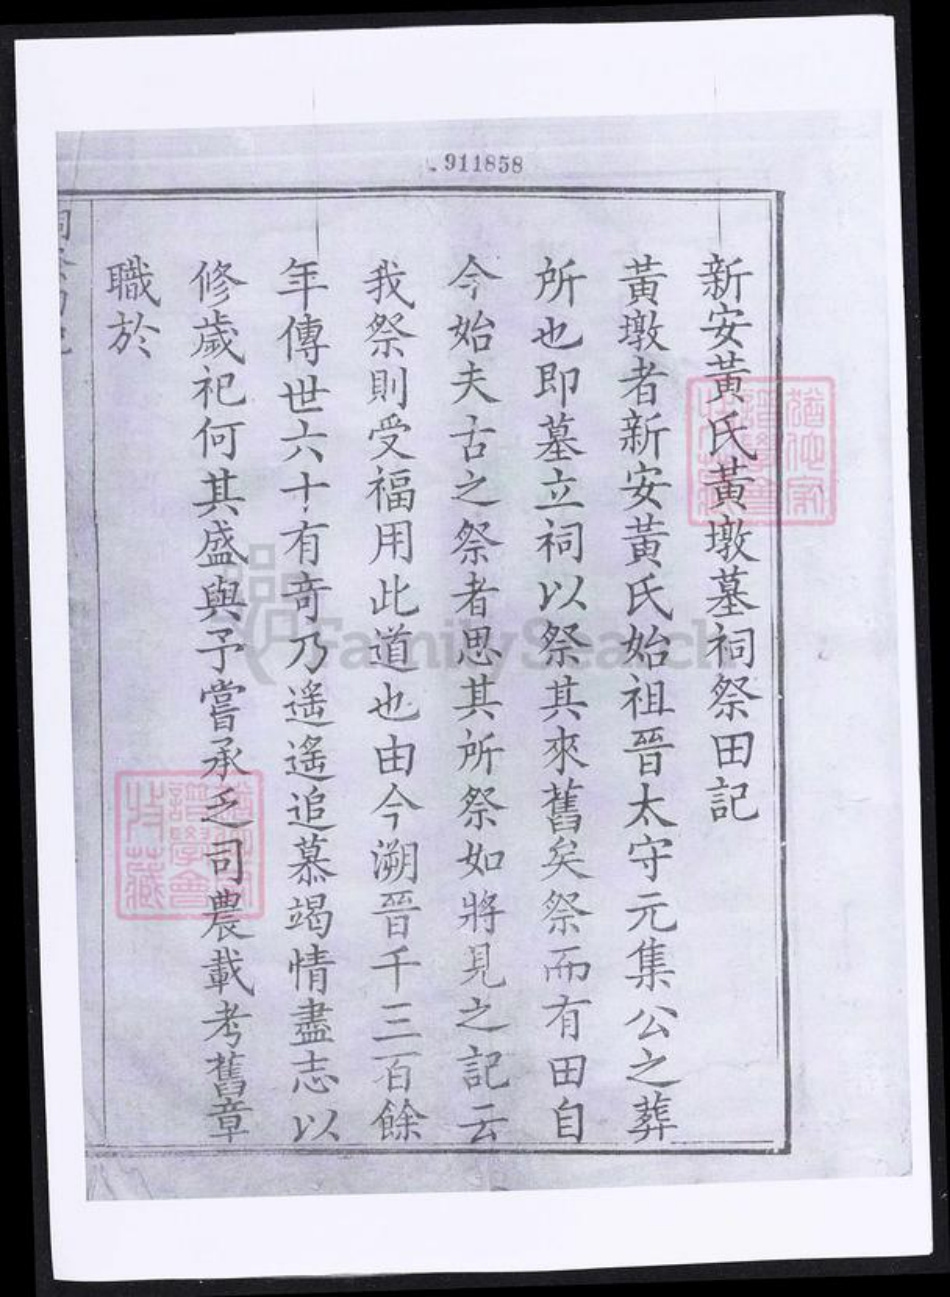 911858
新安黃氏黃墩墓祠祭田記
黃墩者新安黃氏始祖晉太守元集公之葬
所也即墓立祠以祭其來舊矣祭而有田自
今始夫古之祭者思其所祭如將見之記云
我祭則受福用此道也由今溯晉千三百餘
年傳世六十有奇乃遙遙追慕竭情盡志以
修歲祀何其盛與予嘗承乏司農載考舊章
職於
FamilySearch
譜學會
譜學會
藏